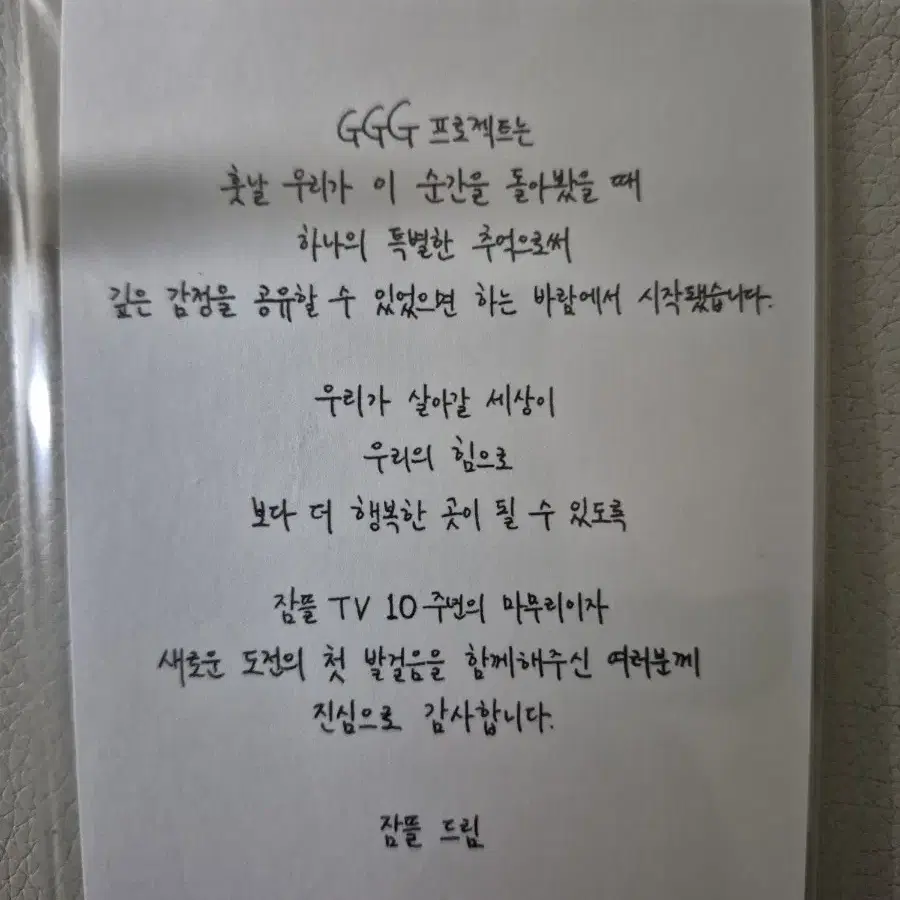 GGG 프로젝트는
훗날 우리가 이 순간을 돌아봤을 때
하나의 특별한 추억으로써
깊은 감정을 공유할 수 있었으면 하는 바람에서 시작됐습니다.
우리가 살아갈 세상이
우리의 힘으로
보다 더 행복한 곳이 될 수 있도록
잠뜰 TV 10주년의 마무리이자
새로운 도전의 첫 발걸음을 함께해주신 여러분께
진심으로 감사합니다.
잠뜰 드림